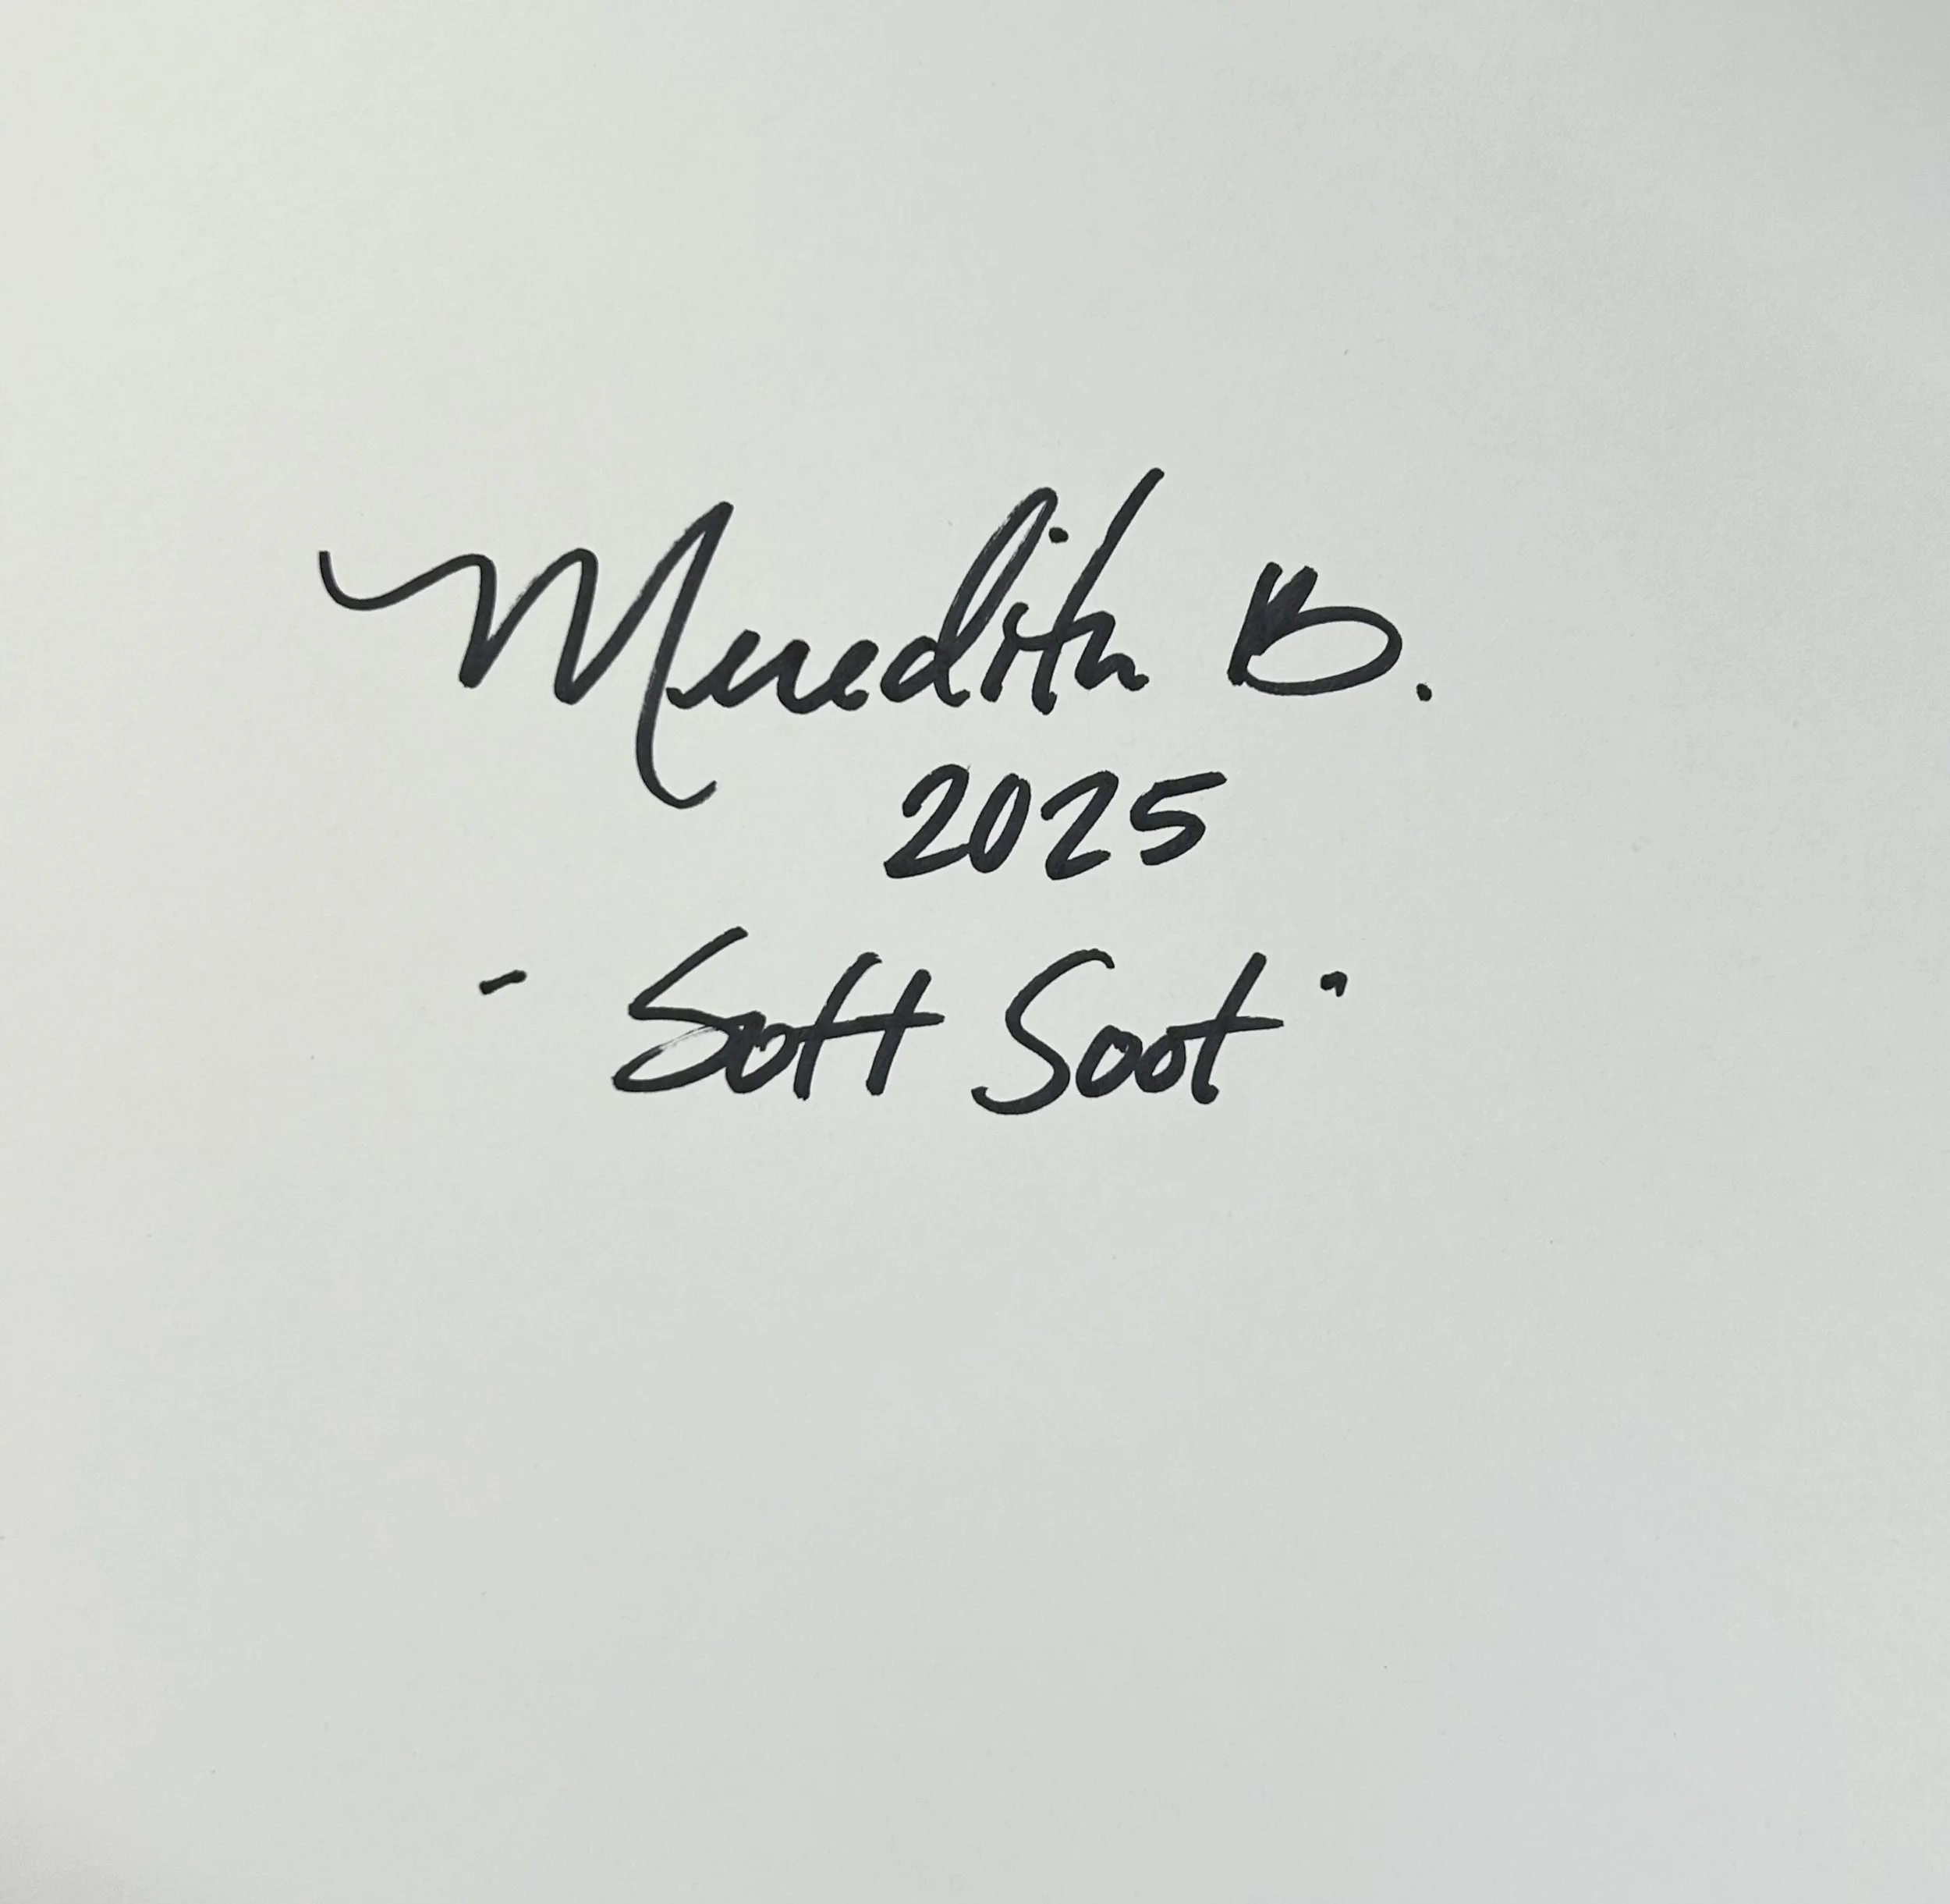 Meredith B.
2025
- Soft Soot "